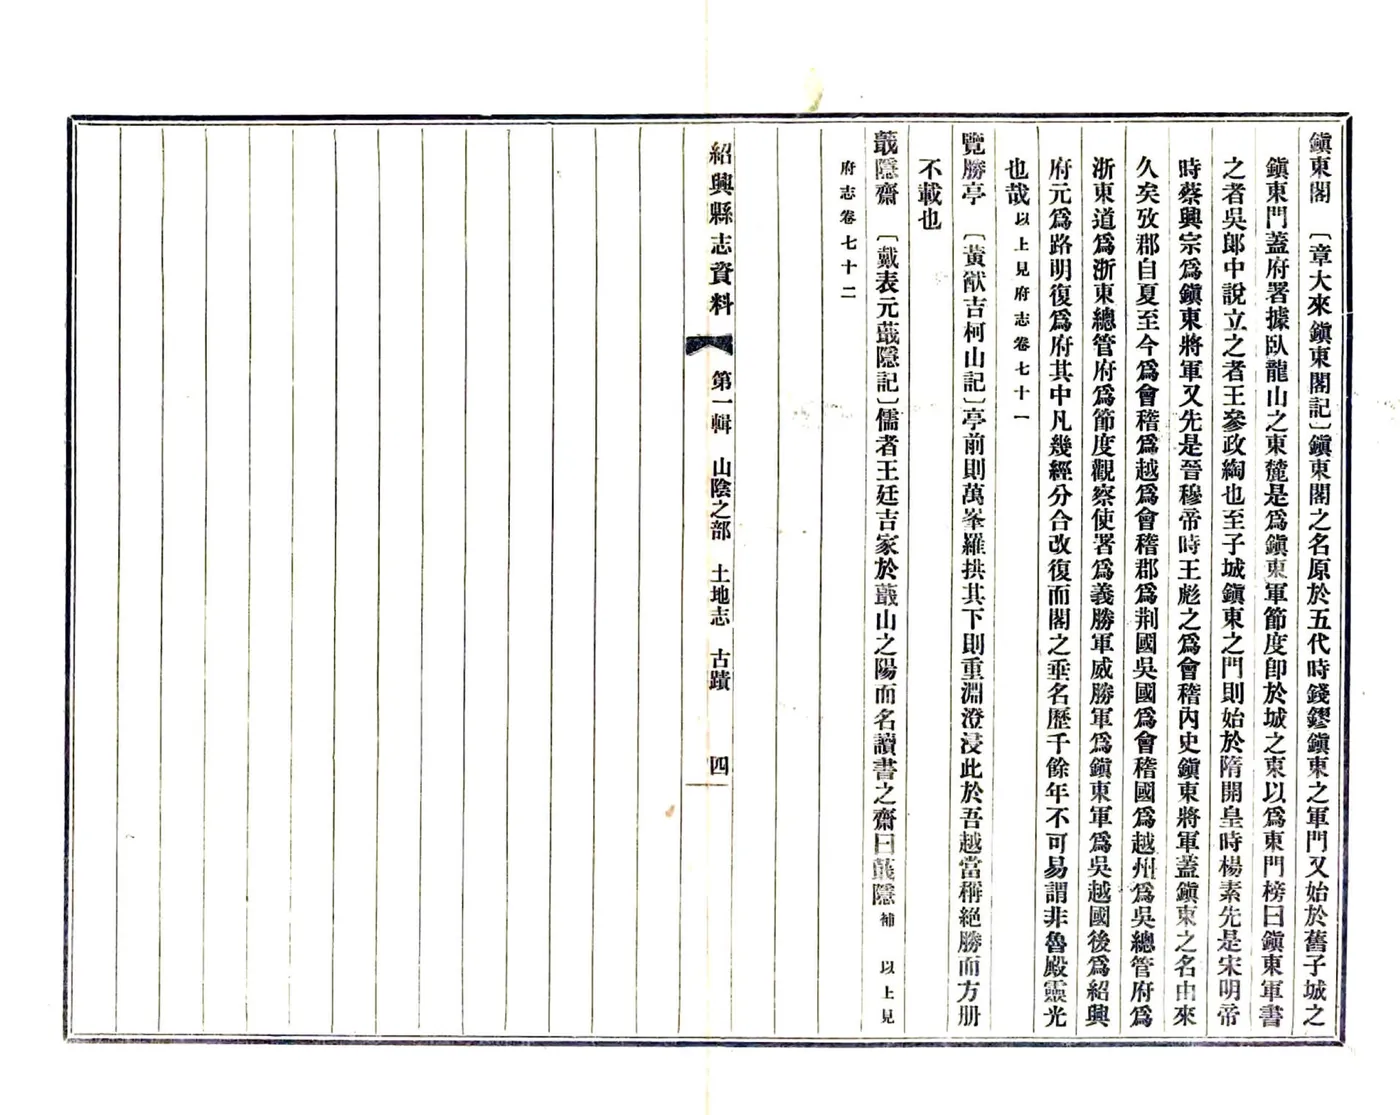 鎮東閣　〔章大來鎮東閣記〕鎮東閣之名原於五代時錢鏐鎮東之軍門又始於舊子城之
鎮東門蓋府署據臥龍山之東麓是爲鎮東軍節度卽於城之東以爲東門榜曰鎮東軍書
之者吳郞中說立之者王參政綯也至子城鎮東之門則始於隋開皇時楊素先是宋明帝
時蔡興宗爲鎮東將軍又先是晉穆帝時王彪之爲會稽內史鎮東將軍蓋鎮東之名由來
久矣攷郡自夏至今爲會稽爲越爲會稽郡爲荆國吳國爲會稽國爲越州爲吳總管府爲
浙東道爲浙東總管府爲節度觀察使署爲義勝軍威勝軍爲鎮東軍爲吳越國後爲紹興
府元爲路明復爲府其中凡幾經分合改復而閣之垂名歷千餘年不可易謂非魯殿靈光
也哉以上見府志卷七十一
覽勝亭　〔黃猷吉柯山記〕亭前則萬峯羅拱其下則重淵澄浸此於吾越當稱絕勝而方册
不載也
蕺隱齋　〔戴表元蕺隱記〕儒者王廷吉家於蕺山之陽而名讀書之齋曰蕺隱補　以上見
府志卷七十二
紹興縣志資料　第一輯　山陰之部　土地志　古蹟　四